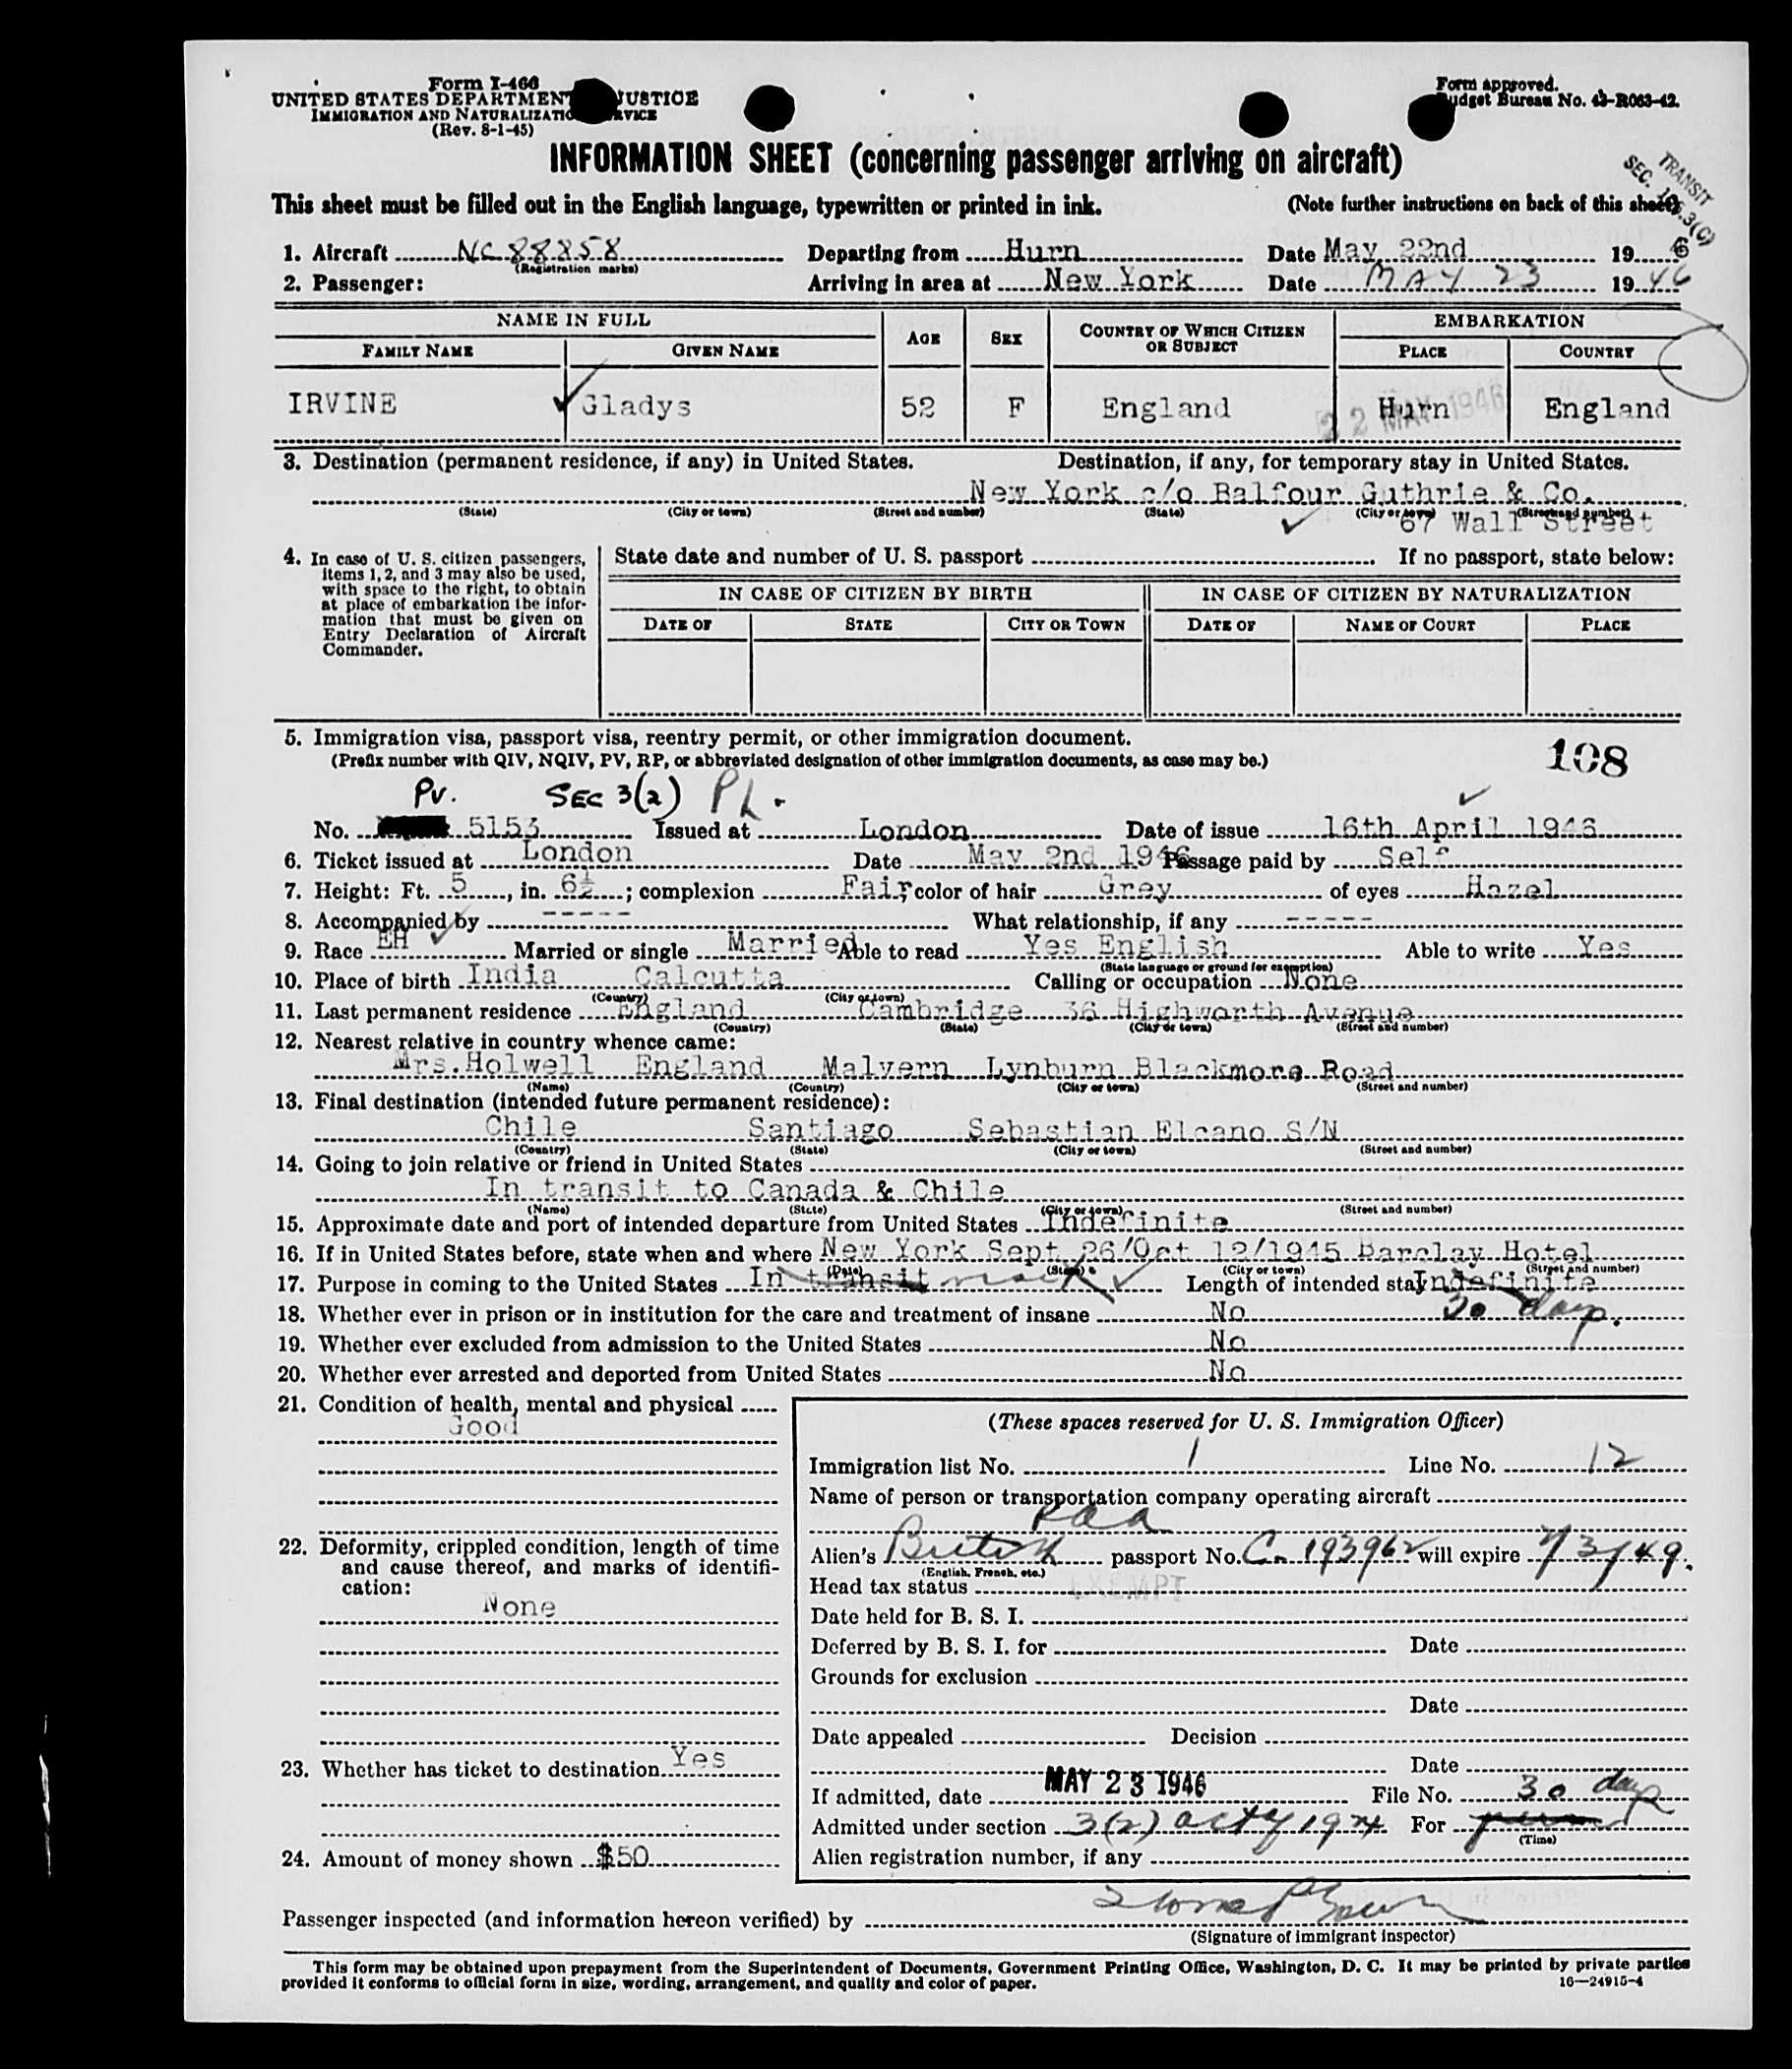 Form I-466
UNITED STATES DEPARTMENT JUSTICE
IMMIGRATION AND NATURALIZATION SERVICE
(Rev. 8-1-45)
Form approved.
Budget Bureau No. 43-R063-42.
TRANSIT
SEC.
.3(C)
INFORMATION SHEET (concerning passenger arriving on aircraft)
This sheet must be filled out in the English language, typewritten or printed in ink. (Note further instructions on back of this sheet)
1. Aircraft NC 88858 Departing from Hurn Date May 22nd 19 6
(Registration marks)
2. Passenger: Arriving in area at New York Date MAY 23 19 46
NAME IN FULL AGE SEX COUNTRY OF WHICH CITIZEN OR SUBJECT EMBARKATION
FAMILY NAME GIVEN NAME PLACE COUNTRY
IRVINE Gladys 52 F England Hurn England
22 MAY 1946
3. Destination (permanent residence, if any) in United States. Destination, if any, for temporary stay in United States.
New York c/o Balfour Guthrie & Co.
(State) (City or town) (Street and number) (State) (City or town) (Street and number)
67 Wall Street
4. In case of U. S. citizen passengers, items 1, 2, and 3 may also be used, with space to the right, to obtain at place of embarkation the information that must be given on Entry Declaration of Aircraft Commander.
State date and number of U. S. passport If no passport, state below:
IN CASE OF CITIZEN BY BIRTH IN CASE OF CITIZEN BY NATURALIZATION
DATE OF STATE CITY OR TOWN DATE OF NAME OF COURT PLACE
5. Immigration visa, passport visa, reentry permit, or other immigration document.
(Prefix number with QIV, NQIV, PV, RP, or abbreviated designation of other immigration documents, as case may be.)
108
PV. SEC 3(2) PL.
No. 5153 Issued at London Date of issue 16th April 1946
6. Ticket issued at London Date May 2nd 1946 Passage paid by Self
7. Height: Ft. 5, in. 6½; complexion Fair; color of hair Grey of eyes Hazel
8. Accompanied by ----- What relationship, if any ------
9. Race EH Married or single Married Able to read Yes English Able to write Yes
(State language or ground for exemption)
10. Place of birth India Calcutta Calling or occupation None
(Country) (City or town)
11. Last permanent residence England Cambridge 36 Highworth Avenue
(Country) (State) (City or town) (Street and number)
12. Nearest relative in country whence came:
Mrs.Holwell England Malvern Lynburn Blackmore Road
(Name) (Country) (City or town) (Street and number)
13. Final destination (intended future permanent residence):
Chile Santiago Sebastian Elcano S/N
(Country) (State) (City or town) (Street and number)
14. Going to join relative or friend in United States
In transit to Canada & Chile
(Name) (State) (City or town) (Street and number)
15. Approximate date and port of intended departure from United States Indefinite
16. If in United States before, state when and where New York Sept 26/Oct 12/1945 Barclay Hotel
(Date) (State) (City or town) (Street and number)
17. Purpose in coming to the United States In transit Length of intended stay Indefinite
30 days.
18. Whether ever in prison or in institution for the care and treatment of insane No
19. Whether ever excluded from admission to the United States No
20. Whether ever arrested and deported from United States No
21. Condition of health, mental and physical
Good
22. Deformity, crippled condition, length of time and cause thereof, and marks of identification:
None
23. Whether has ticket to destination Yes
24. Amount of money shown $50
(These spaces reserved for U. S. Immigration Officer)
Immigration list No. 1 Line No. 12
Name of person or transportation company operating aircraft
PAA
Alien's British passport No. C. 193962 will expire 7/3/49.
(English, French, etc.)
Head tax status
Date held for B. S. I.
Deferred by B. S. I. for Date
Grounds for exclusion
Date
Date appealed Decision
Date
If admitted, date MAY 23 1946 File No. 30 days
Admitted under section 3(2) act of 1924 For
(Time)
Alien registration number, if any
Passenger inspected (and information hereon verified) by
(Signature of immigrant inspector)
This form may be obtained upon prepayment from the Superintendent of Documents, Government Printing Office, Washington, D. C. It may be printed by private parties
provided it conforms to official form in size, wording, arrangement, and quality and color of paper. 16—24915-4